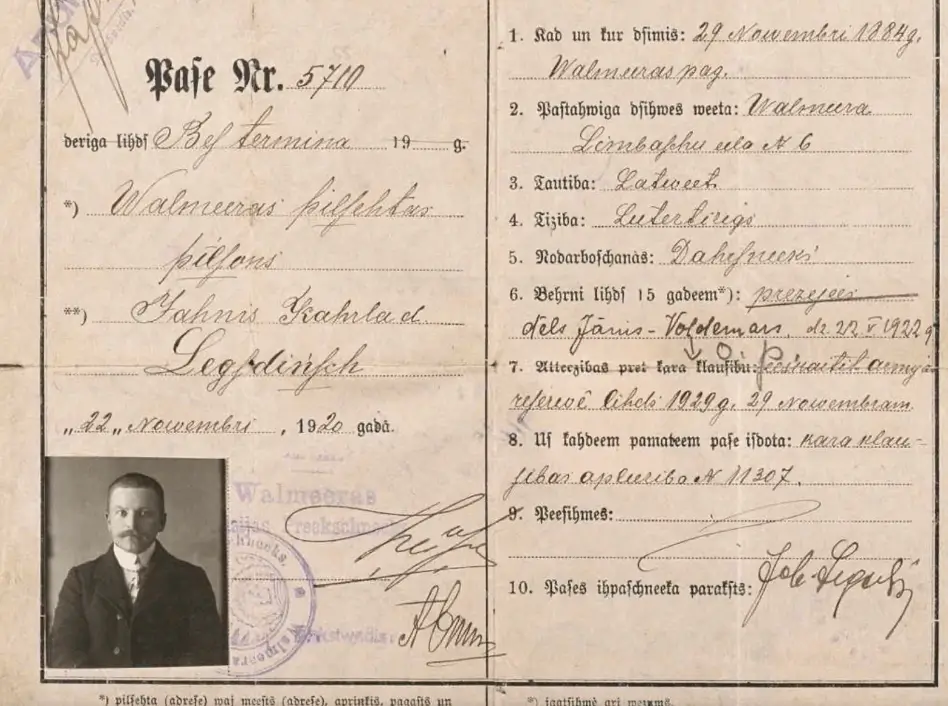 Paſe Nr. 5710
deriga lihdſ Beſ termina 19 g.
*) Walmeeras pilſehtas
pilſons
**) Jahnis Kahrla d.
Legſdiņſch
„22„ Nowembri, 1920 gadâ.
Walmeeras
Preekschneeks
*) pilſehta (adreſe) waj meests (adreſe), aprinkis, pagasts un
1. Kad un kur dſimis: 29 Nowembri 1884g.
Walmeeras pag.
2. Paſtahwiga dſihwes weeta: Walmeera
Limbaſchu iela N 6
3. Tautiba: Latweets
4. Tiziba: Luterticigs
5. Nodarboſchanâs: Dahrſneeks
6. Behrni lihdſ 15 gadeem*): prezejees
dels Jānis-Voldemars, dz. 22 V 1922g
7. Atteezibas pret kara klauſibu: Peeskaitit armijas
reſervē lihds 1929g. 29 Nowembram.
8. Uſ kahdeem pamateem paſe iſdota: kara klau-
ſibas apleeziba N 11307.
9. Peeſihmes:
10. Paſes ihpaſchneeka paraksts:
*) jaatſihmê arî